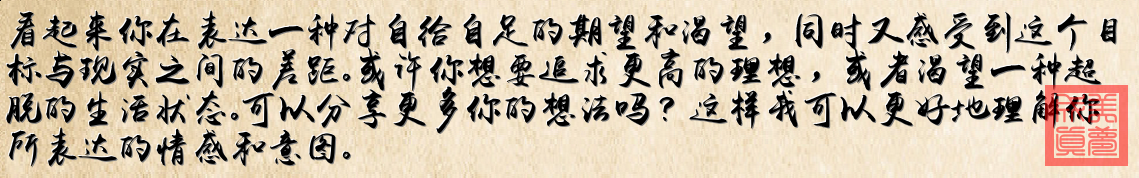 看起来你在表达一种对自给自足的期望和渴望，同时又感受到这个目
标与现实之间的差距。或许你想要追求更高的理想，或者渴望一种超
脱的生活状态。可以分享更多你的想法吗？这样我可以更好地理解你
所表达的情感和意图。